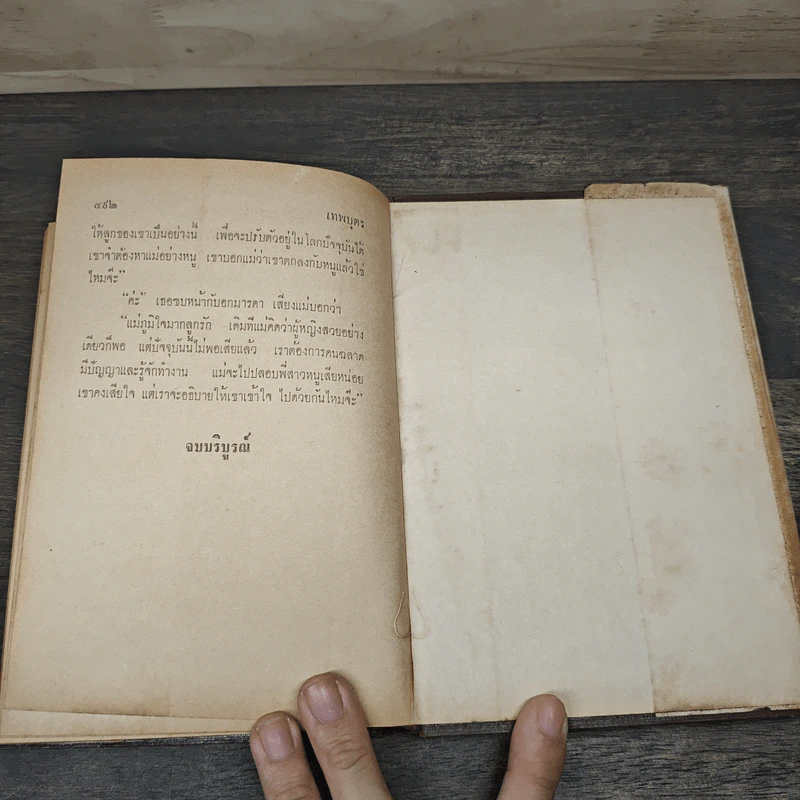 ๔๙๒
เทพบุตร
ให้ลูกของเขาเป็นอย่างนี้ เพื่อจะปรับตัวอยู่ในโลกปัจจุบันได้
เขาจำต้องหาแม่อย่างหนู เขาบอกแม่ว่าเขาตกลงกับหนูแล้วใช่
ไหมจ๊ะ”
“ค่ะ” เธอซบหน้ากับอกมารดา เสียงแม่บอกว่า
“แม่ภูมิใจมากลูกรัก เดิมทีแม่คิดว่าผู้หญิงสวยอย่าง
เดียวก็พอ แต่ปัจจุบันนี้ไม่พอเสียแล้ว เราต้องการคนฉลาด
มีปัญญาและรู้จักทำงาน แม่จะไปปลอบพี่สาวหนูเสียหน่อย
เขาคงเสียใจ แต่เราจะอธิบายให้เขาเข้าใจ ไปด้วยกันไหมจ๊ะ”
จบบริบูรณ์